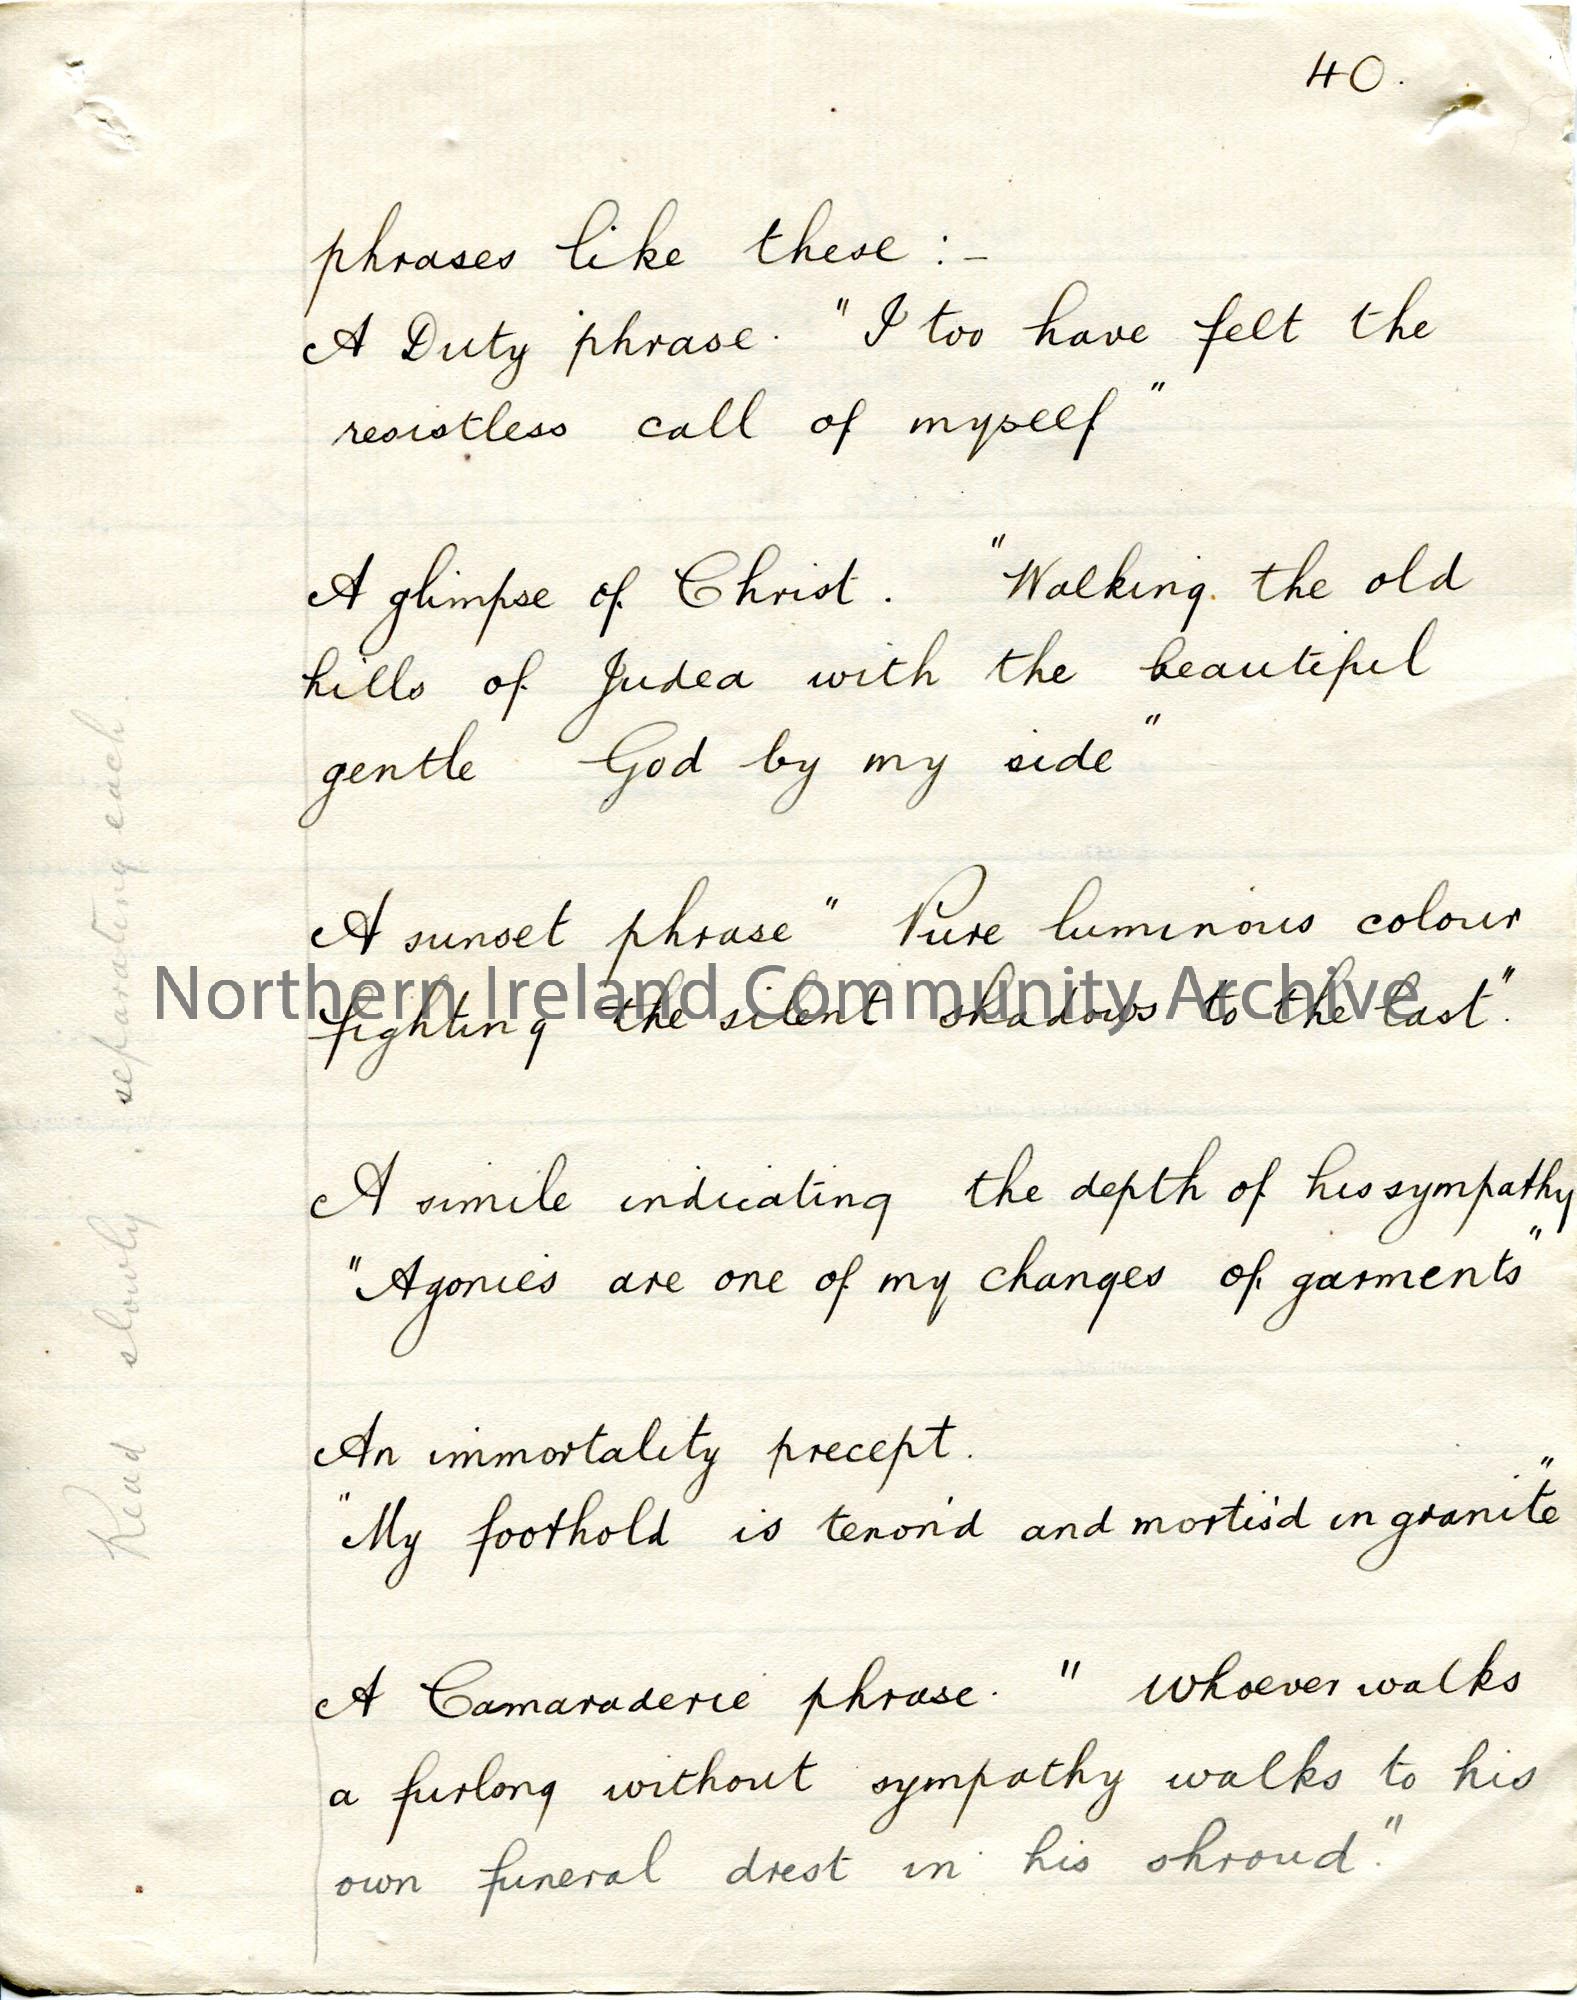 40.
phrases like these :-
A Duty phrase. "I too have felt the
resistless call of myself"
A glimpse of Christ. "Walking the old
hills of Judea with the beautiful
gentle God by my side"
A sunset phrase " Pure luminous colour
fighting the silent shadows to the last".
A simile indicating the depth of his sympathy
"Agonies are one of my changes of garments"
An immortality precept.
"My foothold is tenon'd and mortis'd in granite"
A Camaraderie phrase. " Whoever walks
a furlong without sympathy walks to his
own funeral drest in his shroud."
Read slowly. separating each.
Northern Ireland Community Archive